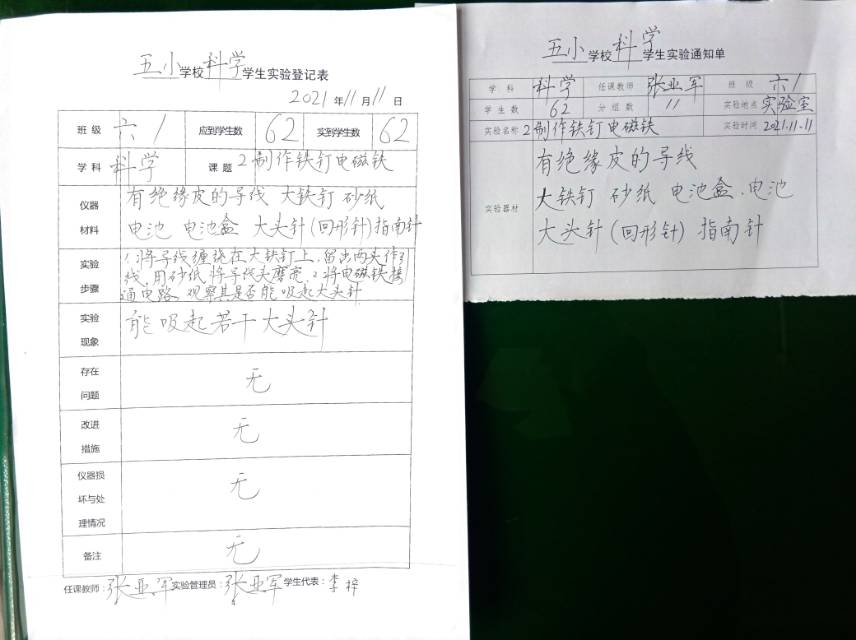 五小学校科学学生实验登记表
2021年11月11日
班级 六1 应到学生数 62 实到学生数 62
学科 科学 课题 2制作铁钉电磁铁
仪器材料 有绝缘皮的导线 大铁钉 砂纸
电池 电池盒 大头针(回形针)指南针
实验步骤 1.将导线缠绕在大铁钉上,留出两头作引
线,用砂纸将导线头磨亮,2.将电磁铁接
通电路,观察其是否能吸起大头针
实验现象 能吸起若干大头针
存在问题 无
改进措施 无
仪器损坏与处理情况 无
备注 无
任课教师:张亚军 实验管理员:张亚军 学生代表:李梓
五小学校科学学生实验通知单
学科 科学 任课教师 张亚军 班级 六1
学生数 62 分组数 11 实验地点 实验室
实验名称 2制作铁钉电磁铁 实验时间 2021.11.11
实验器材 有绝缘皮的导线
大铁钉 砂纸 电池盒、电池
大头针(回形针) 指南针